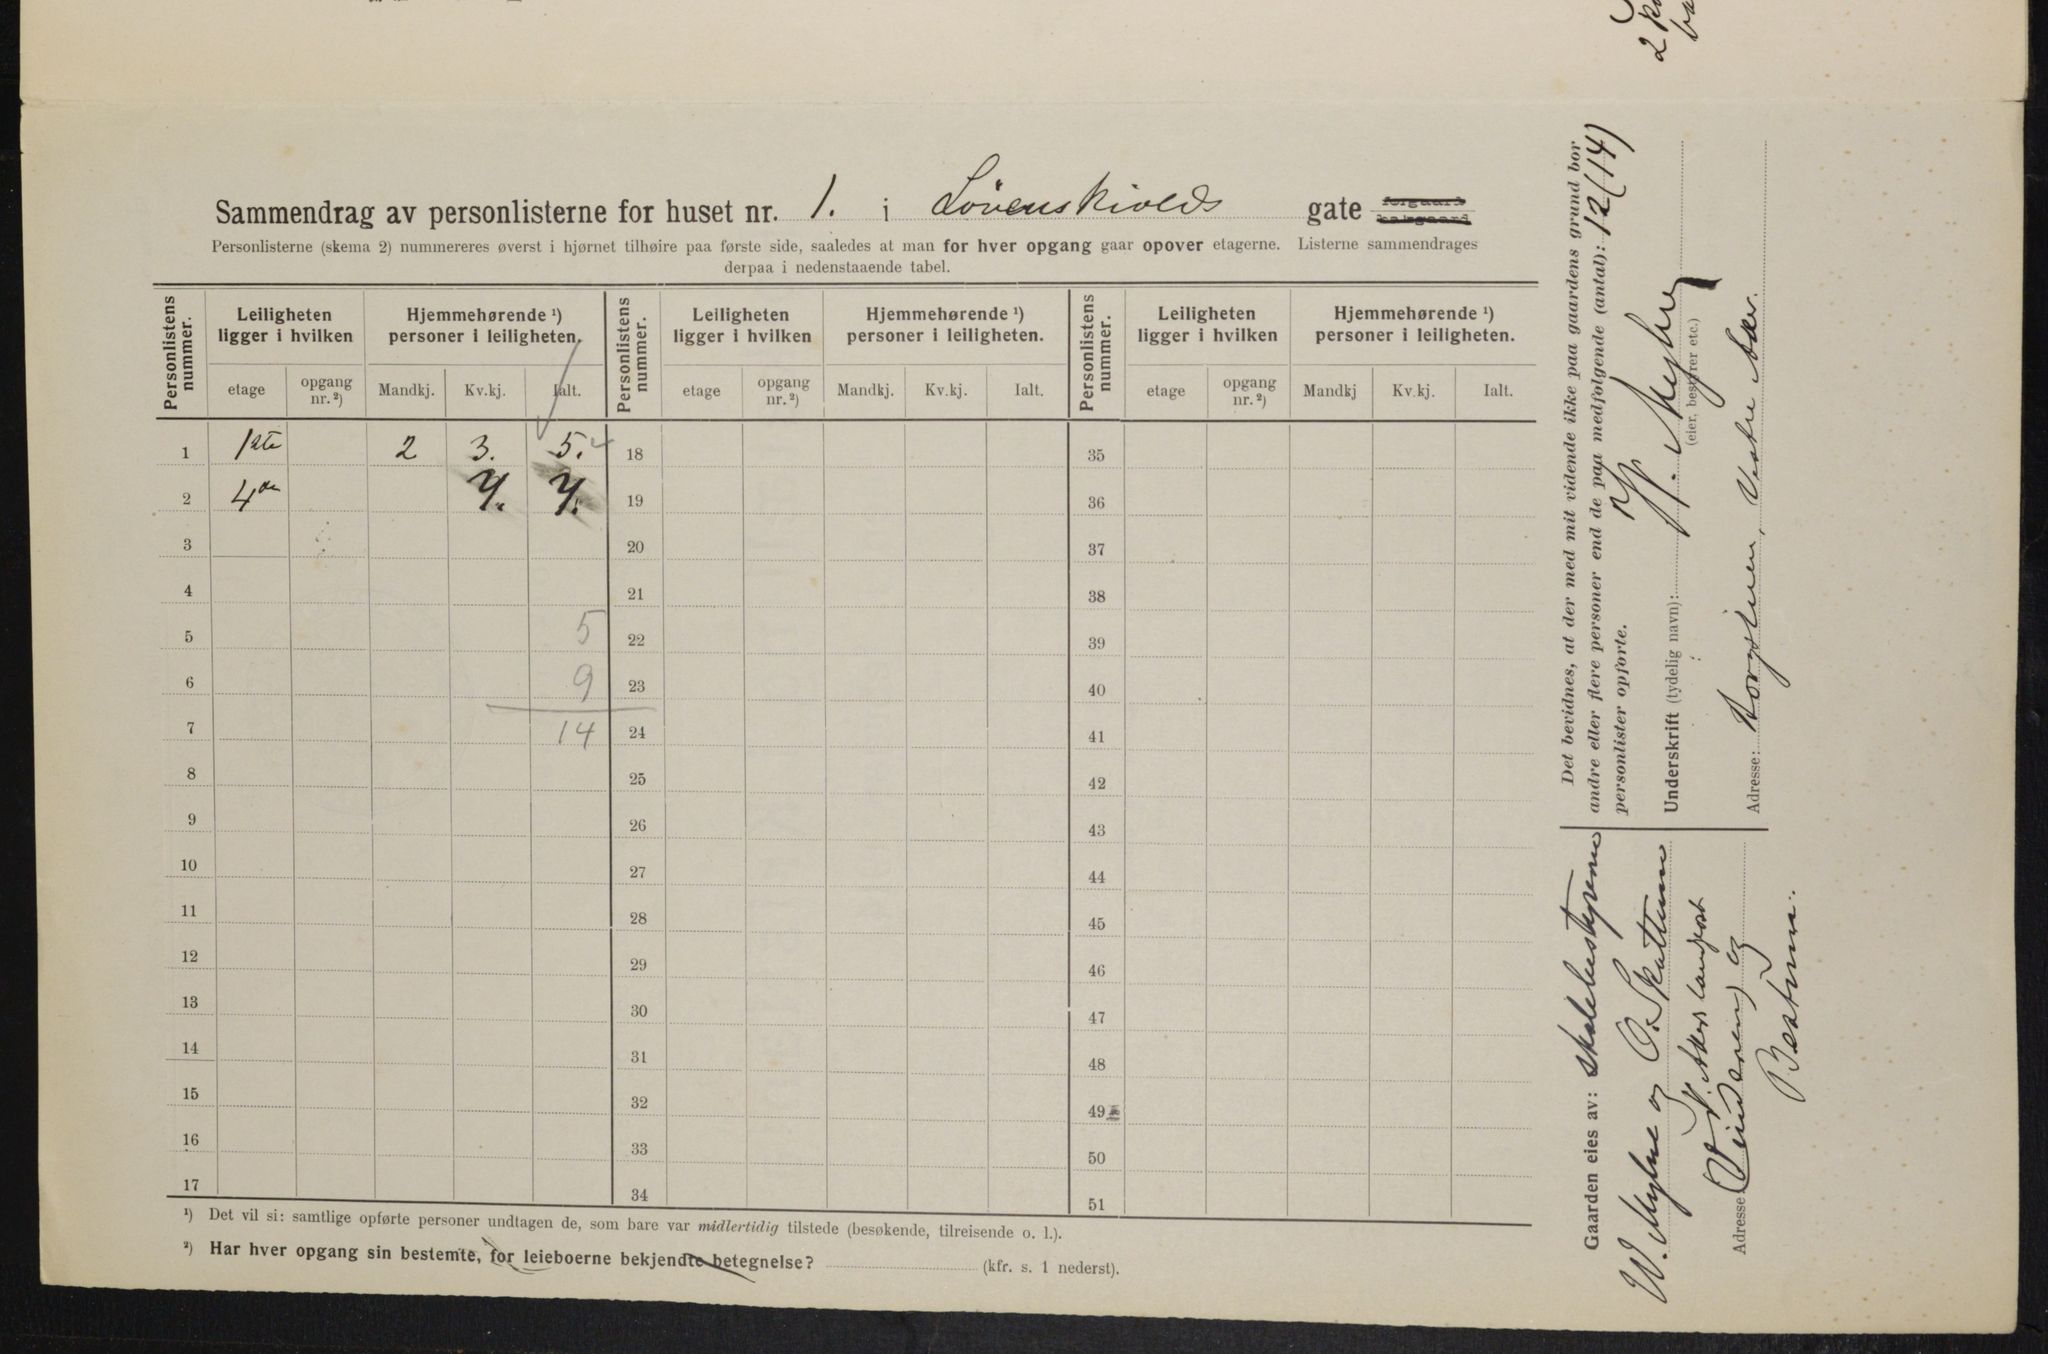 Sammendrag av personlisterne for huset nr. 1. i Løvenskiolds gate forgaard bakgaard
Personlisterne (skema 2) nummereres øverst i hjørnet tilhøire paa første side, saaledes at man for hver opgang gaar opover etagerne. Listerne sammendrages
derpaa i nedenstaaende tabel.
Personlistens nummer. Leiligheten ligger i hvilken Hjemmehørende ¹) personer i leiligheten. Personlistens nummer. Leiligheten ligger i hvilken Hjemmehørende ¹) personer i leiligheten. Personlistens nummer. Leiligheten ligger i hvilken Hjemmehørende ¹) personer i leiligheten.
etage opgang nr. ²) Mandkj. Kv.kj. Ialt. etage opgang nr. ²) Mandkj. Kv.kj. Ialt. etage opgang nr. ²) Mandkj Kv.kj. Ialt.
1 1ste 2 3. 5. 18 35
2 4de 19 36
3 20 37
4 21 38
5 5 22 39
6 9 23 40
7 14 24 41
8 25 42
9 26 43
10 27 44
11 28 45
12 29 46
13 30 47
14 31 48
15 32 49
16 33 50
17 34 51
¹) Det vil si: samtlige opførte personer undtagen de, som bare var midlertidig tilstede (besøkende, tilreisende o. l.).
²) Har hver opgang sin bestemte, for leieboerne bekjendte betegnelse? (kfr. s. 1 nederst).
Det bevidnes, at der med mit vidende ikke paa gaardens grund bor
andre eller flere personer end de paa medfølgende (antal): 12 (14)
personlister opførte.
Underskrift (tydelig navn): W. Myhre
(eier, bestyrer etc.)
Adresse: Vestre Aker.
Gaarden eies av:
W. Myhre og O. Skattum
V. Aker
Adresse: (Vinderen) og
Bestum.